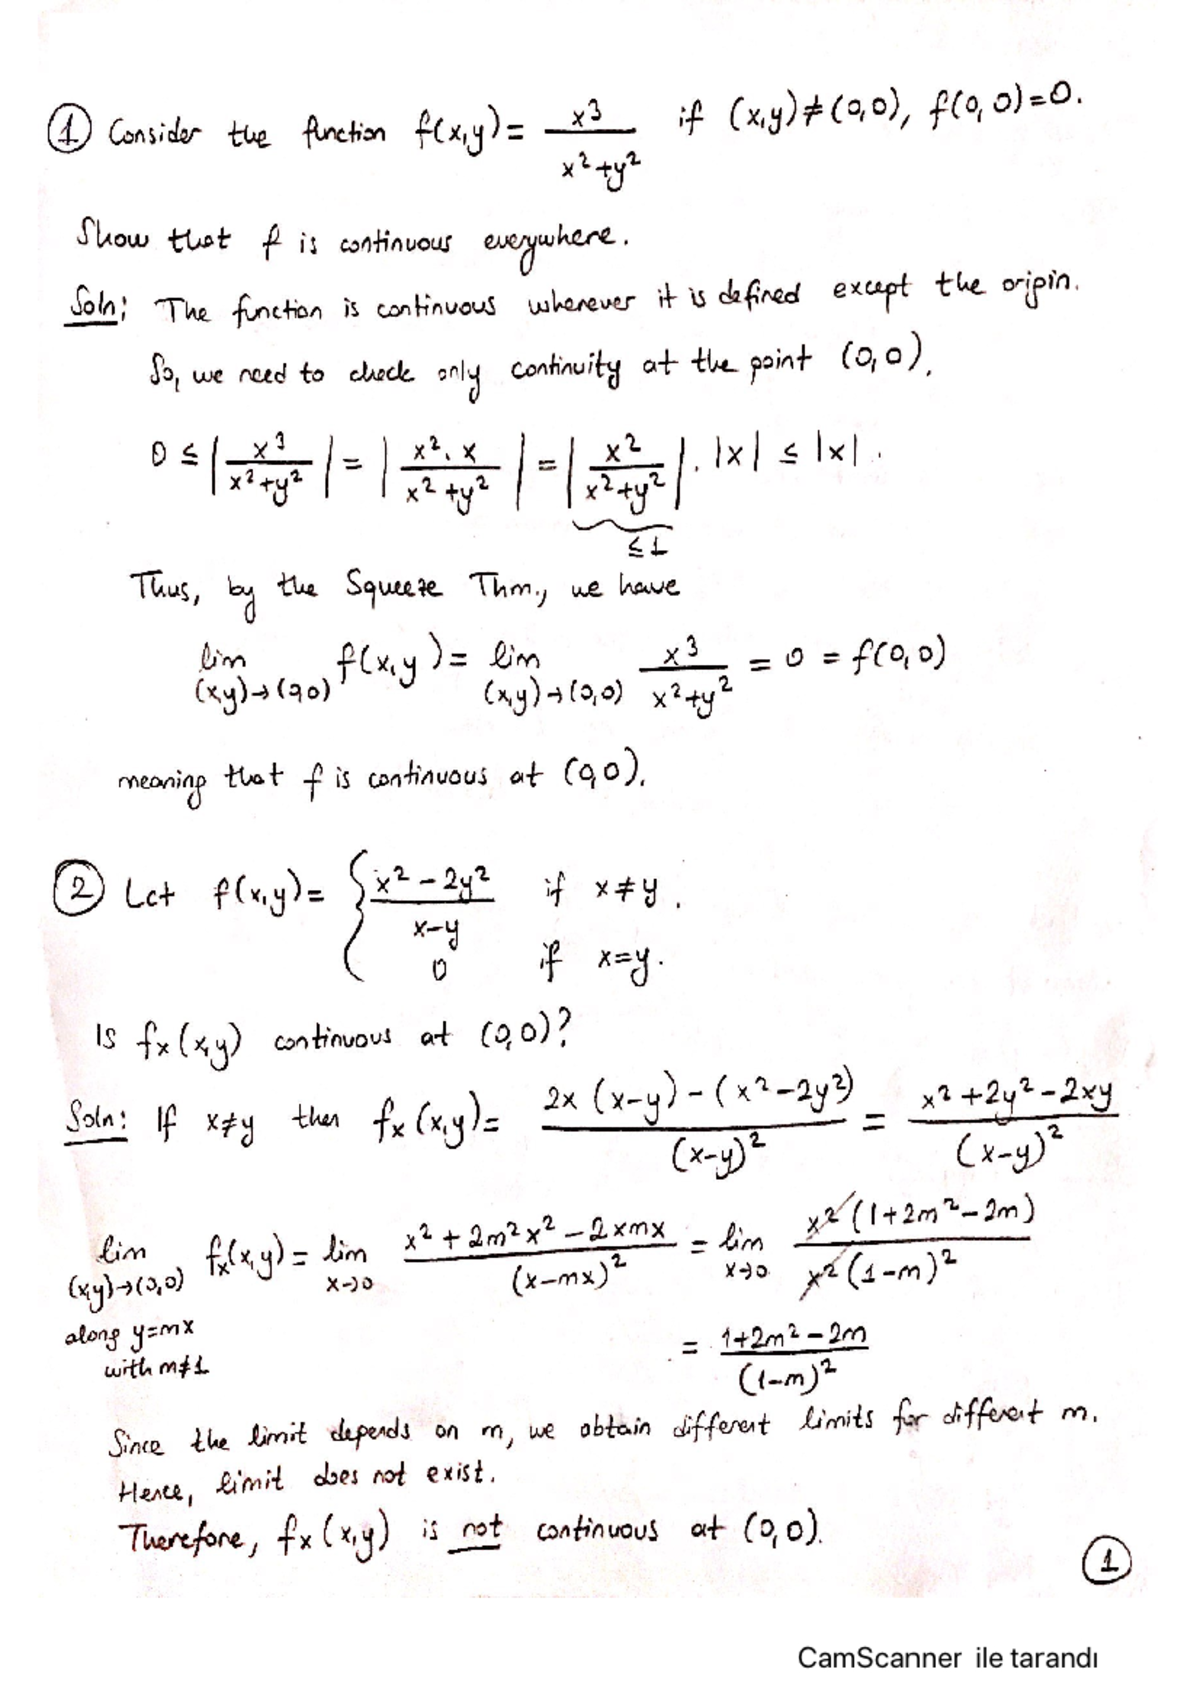 ① Consider the function f(x,y) = x³/(x²+y²) if (x,y)≠(0,0), f(0,0)=0.
Show that f is continuous everywhere.
Soln: The function is continuous wherever it is defined except the origin.
So, we need to check only continuity at the point (0,0).
0 ≤ |x³/(x²+y²)| = |x².x/(x²+y²)| = |x²/(x²+y²)|.|x| ≤ |x|.
≤1
Thus, by the Squeeze Thm., we have
lim (x,y)→(0,0) f(x,y) = lim (x,y)→(0,0) x³/(x²+y²) = 0 = f(0,0)
meaning that f is continuous at (0,0).
② Let f(x,y) = { (x²-2y²)/(x-y) if x≠y.
0 if x=y.
Is fx(x,y) continuous at (0,0)?
Soln: If x≠y then fx(x,y) = (2x(x-y)-(x²-2y²))/(x-y)² = (x²+2y²-2xy)/(x-y)²
lim (x,y)→(0,0) fx(x,y) = lim x→0 (x²+2m²x²-2xmx)/(x-mx)² = lim x→0 x²(1+2m²-2m)/(x²(1-m)²)
along y=mx
with m≠1
= (1+2m²-2m)/(1-m)²
Since the limit depends on m, we obtain different limits for different m.
Hence, limit does not exist.
Therefore, fx(x,y) is not continuous at (0,0).
①
CamScanner ile tarandı